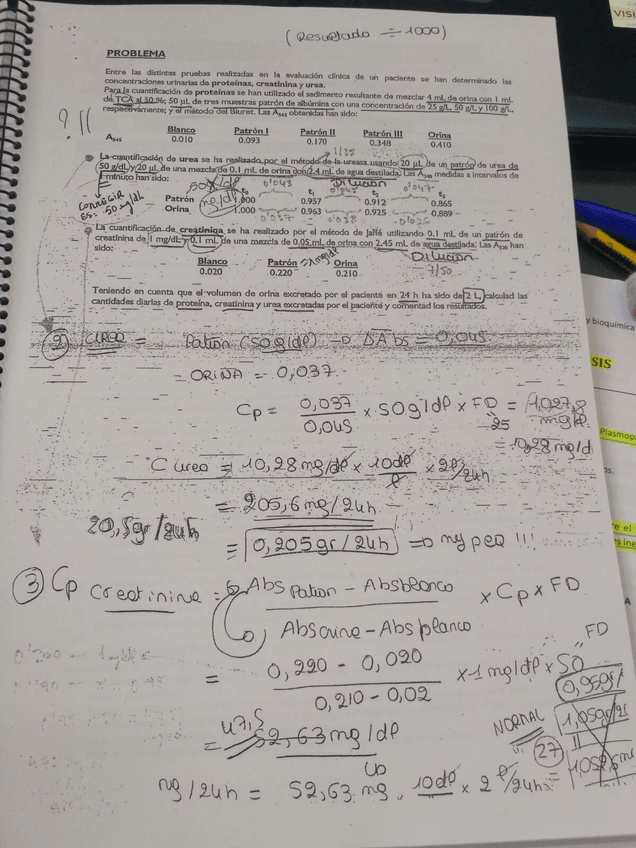 (Resultado ÷ 1000)
VISI
PROBLEMA
Entre las distintas pruebas realizadas en la evaluación clínica de un paciente se han determinado las
concentraciones urinarias de proteínas, creatinina y urea.
Para la cuantificación de proteínas se han utilizado el sedimento resultante de mezclar 4 mL de orina con 1 mL
de TCA al 50 %; 50 µL de tres muestras patrón de albúmina con una concentración de 25 g/L, 50 g/L y 100 g/L,
respectivamente; y el método del Biuret. Las A545 obtenidas han sido:
Blanco Patrón I Patrón II Patrón III Orina
A545 0.010 0.093 0.170 0.348 0.410
? !!
1/25
La cuantificación de urea se ha realizado por el método de la ureasa usando 20 µL de un patrón de urea de
50 g/dL y 20 µL de una mezcla de 0.1 mL de orina con 2.4 mL de agua destilada. Las A340 medidas a intervalos de
1 minuto han sido:
Dilución
0'043 0'045 0'047
CORREGIR
ES = 50 mg/dL
mg/dL
t1
Patrón 1.000 0.957 0.912 0.865
Orina 1.000 0.963 0.925 0.889
0'037 0'038 0'036
La cuantificación de creatinina se ha realizado por el método de Jaffé utilizando 0.1 mL de un patrón de
creatinina de 1 mg/dL y 0.1 mL de una mezcla de 0.05 mL de orina con 2.45 mL de agua destilada. Las A520 han
sido:
Blanco Patrón Orina
0.020 0.220 0.210
1 mg/dl
Dilución
1/50
Teniendo en cuenta que el volumen de orina excretado por el paciente en 24 h ha sido de 2 L, calculad las
cantidades diarias de proteína, creatinina y urea excretadas por el paciente y comentad los resultados.
y bioquímica
SIS
Plasmop
② UREA = Patron (50g/dl) → ΔAbs = 0,045
- ORINA = 0,037
Cp = 0,037 / 0,045 × 50g/dl × FD = 1,027,8 mg/dl
25
= 10,28 mg/d
C urea = 10,28 mg/dl × 10dl/l × 2l/24h
= 205,6 mg/24h
20,5gr/24h
= 0,205gr/24h ⇒ my peq !!!
③ Cp creatinina = Abs Patron - Abs blanco / Abs orina - Abs blanco × Cp × FD
FD
= 0,220 - 0,020 / 0,210 - 0,02 × 1 mg/dl × 50
0,95gr/
= 47,5 52,63 mg/dl
NORMAL
27
mg/24h = 52,63 mg . 10dl × 2 l/24h =